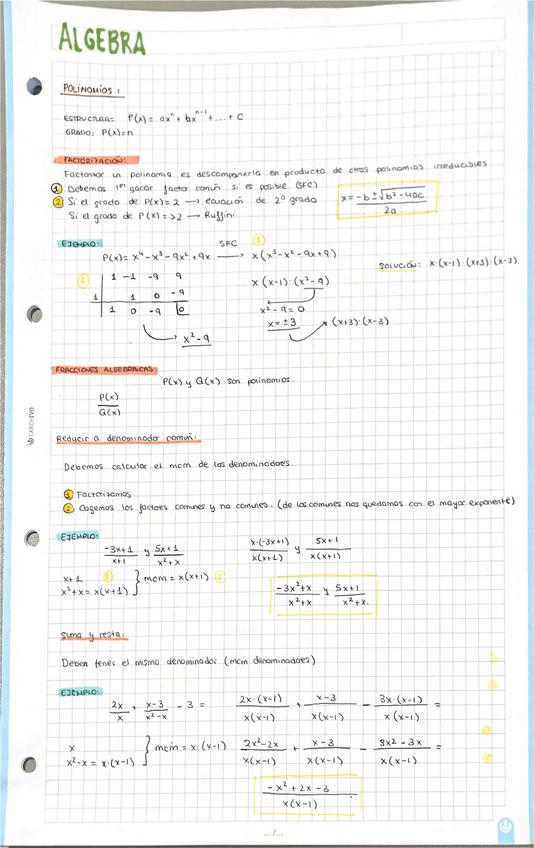 ALGEBRA
POLINOMIOS:
ESTRUCTURA: P(x) = axⁿ + bxⁿ⁻¹ + ... + C
GRADO: P(x) = n
FACTORIZACIÓN:
Factorizar un polinomio es descomponerlo en producto de otros polinomios irreducibles
① Debemos 1º sacar factor común si es posible (SFC)
② Si el grado de P(x) = 2 → ecuación de 2º grado
Si el grado de P(x) = >2 → Ruffini
x = (-b ± √(b² - 4ac)) / 2a
EJEMPLO:
SFC ①
P(x) = x⁴ - x³ - 9x² + 9x → x(x³ - x² - 9x + 9)
SOLUCIÓN: x·(x-1)·(x+3)·(x-3).
② 1 -1 -9 9
1 1 0 -9
1 0 -9 0
x² - 9
x(x-1)·(x²-9)
x² - 9 = 0
x = ±3 → (x+3)·(x-3)
FRACCIONES ALGEBRAICAS
P(x) y Q(x) son polinomios.
P(x)/Q(x)
Reducir a denominador común:
Debemos calcular el mcm de los denominadores.
① Factorizamos
② Cogemos los factores comunes y no comunes. (de los comunes nos quedamos con el mayor exponente)
EJEMPLO:
(-3x+1)/(x+1) y (5x+1)/(x²+x)
x+1 ①
x²+x = x(x+1) } mcm = x(x+1) ②
x·(-3x+1)/x(x+1) y (5x+1)/x(x+1)
(-3x²+x)/(x²+x) y (5x+1)/(x²+x).
Suma y resta:
Deben tener el mismo denominador (mcm denominadores)
EJEMPLO:
2x/x + (x-3)/(x²-x) - 3 = 2x·(x-1)/x(x-1) + (x-3)/x(x-1) - 3x·(x-1)/x(x-1) =
x
x²-x = x·(x-1) } mcm = x·(x-1)
(2x²-2x)/x(x-1) + (x-3)/x(x-1) - (3x²-3x)/x(x-1) =
(-x²+2x-3)/x(x-1)
.../...
CARCHIVO